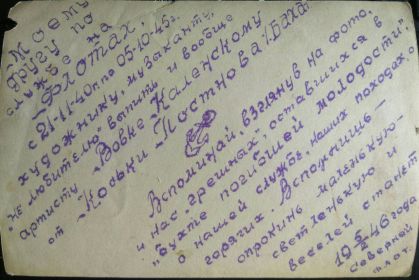 Моему
другу по
службе на
"Фокотах"
с 21-11-40г. по 05-10-45г.
художнику, музыканту,
"не любителю" выпить и вообще
артисту Вовке Каленскому
от Кольки Постнова
Вспоминай, взглянув на фото,
и нас "грешных", оставшихся в
"бухте погибшей молодости"
о нашей службе, наших походах,
горячих. Вспомнишь —
опрокинь маленькую —
светленькую и
веселей станет
19 5/II 46 года
Северный
флот